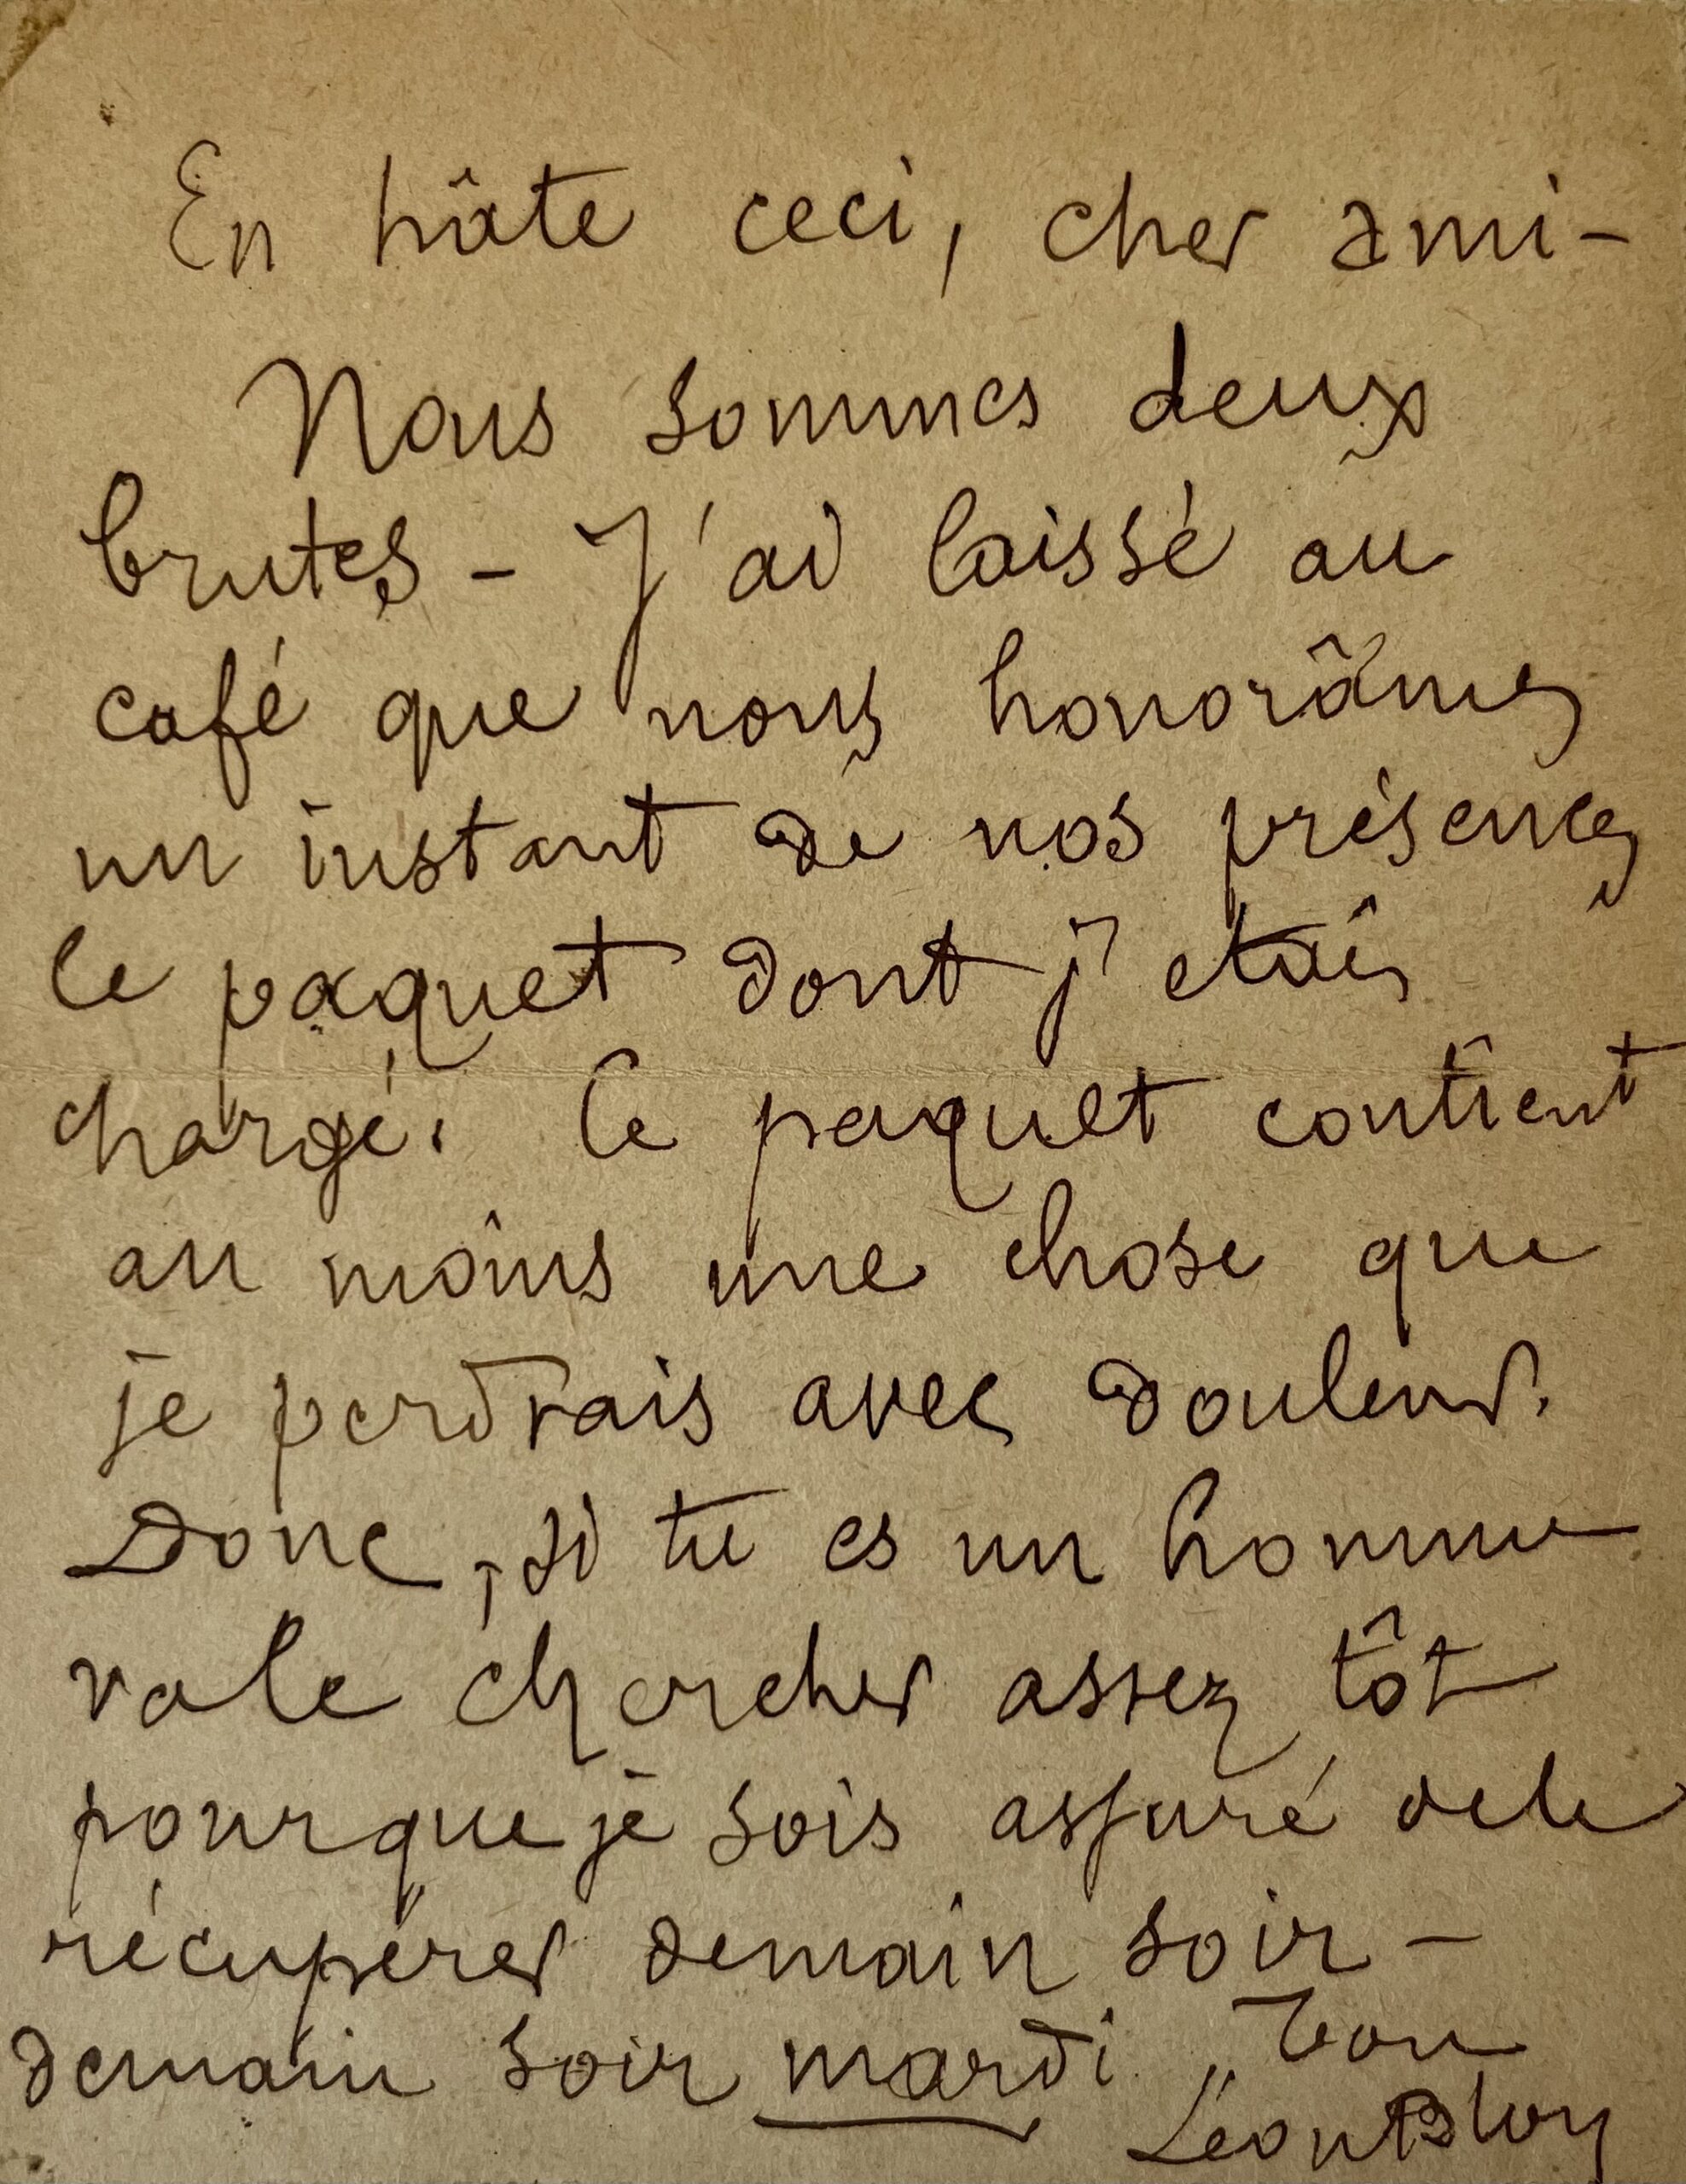 En hâte ceci, cher ami –
Nous sommes deux
brutes – J'ai laissé au
café que nous honorâmes
un instant de nos présences
le paquet dont j'étais
chargé. Ce paquet contient
au moins une chose que
je perdrais avec douleur.
Donc, si tu es un homme
va le chercher assez tôt
pour que je sois assuré de le
récupérer demain soir –
demain soir mardi. Ton
Léon Bloy